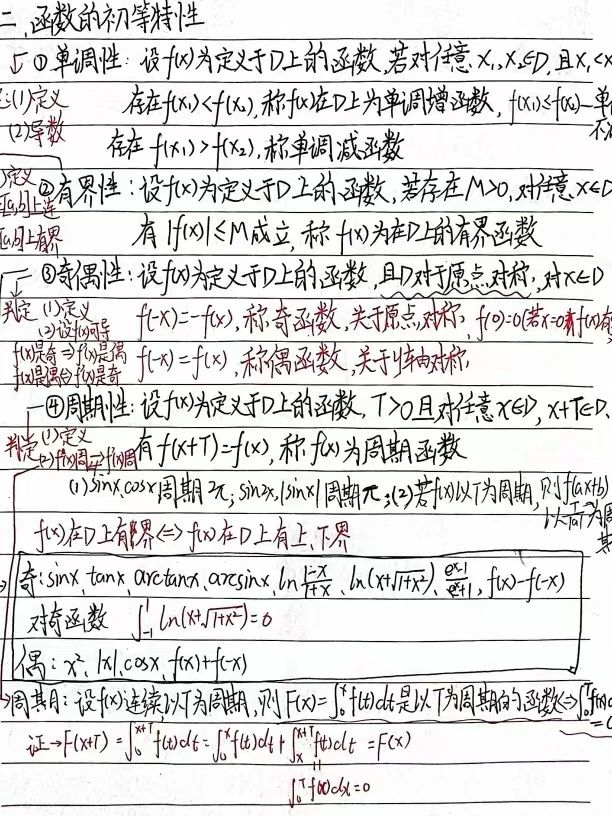 二、函数的初等特性
①单调性：设f(x)为定义于D上的函数，若对任意x₁,x₂∈D,且x₁<x
(1)定义
存在f(x₁)<f(x₂),称f(x)在D上为单调增函数，f(x₁)<f(x₂)—单
(2)导数
存在f(x₁)>f(x₂),称单调减函数
定义
②有界性：设f(x)为定义于D上的函数，若存在M>0,对任意x∈D
[a,b]上连
[a,b]上有界
有|f(x)|≤M成立，称f(x)为在D上的有界函数
③奇偶性：设f(x)为定义于D上的函数，且D对于原点对称，对x∈D
判定(1)定义
(2)设f(x)可导
f(-x)=-f(x),称奇函数，关于原点对称，f(0)=0(若x=0
f(x)是奇⇒f'(x)是偶
f(-x)=f(x),称偶函数，关于y轴对称
f(x)是偶⇔f'(x)是奇
④周期性：设f(x)为定义于D上的函数，T>0且对任意x∈D,x+T∈D,
判定(1)定义
有f(x+T)=f(x),称f(x)为周期函数
(1)sinx,cosx周期2π;sin2x,|sinx|周期π;(2)若f(x)以T为周期，则f(ax+b)
f(x)在D上有界⇔f(x)在D上有上、下界
奇：sinx、tanx、arctanx、arcsinx、ln (1-x)/(1+x)、ln(x+√(1+x²))、(eˣ-1)/(eˣ+1)、f(x)-f(-x)
对奇函数 ∫₋₁¹ ln(x+√(1+x²))=0
偶：x²、|x|、cosx、f(x)+f(-x)
周期：设f(x)连续，以T为周期，则F(x)=∫₀ˣf(t)dt是以T为周期的函数⇔
证→F(x+T)=∫₀ˣ⁺ᵀf(t)dt=∫₀ˣf(t)dt+∫ₓˣ⁺ᵀf(t)dt=F(x)
∫₀ᵀf(x)dx=0